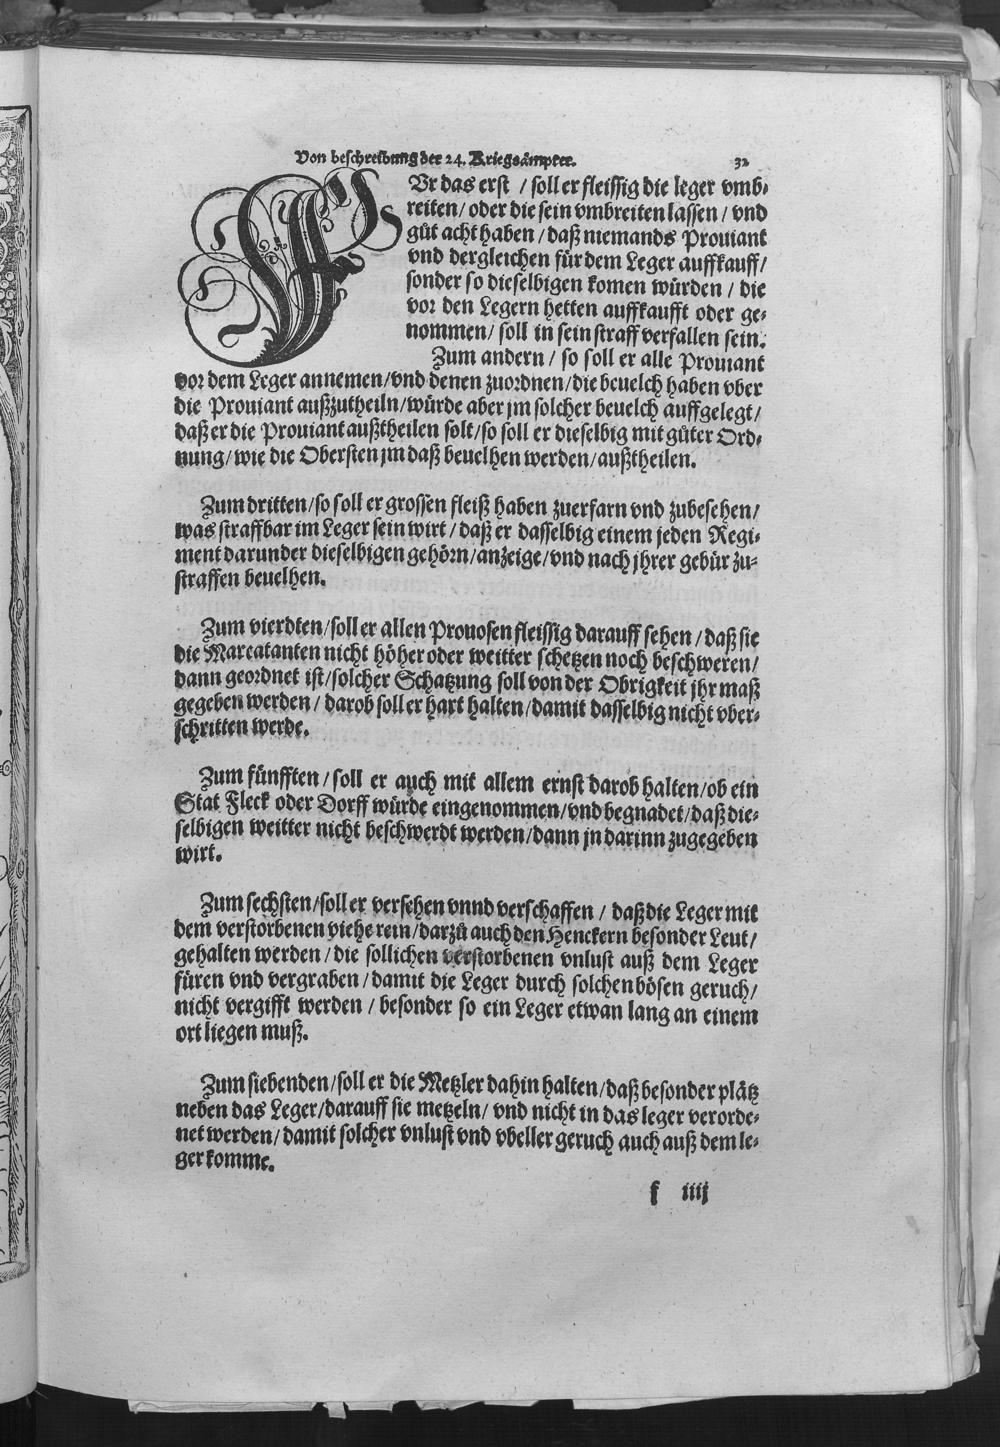 Von beschreibung der 24. Kriegsämpter. 32
FUr das erst / soll er fleissig die leger vmb-
reiten / oder die sein vmbreiten lassen / vnd
gůt acht haben / daß niemands Prouiant
vnd dergleichen für dem Leger auffkauff /
sonder so dieselbigen komen würden / die
vor den Legern hetten auffkaufft oder ge-
nommen / soll in sein straff verfallen sein.
Zum andern / so soll er alle Prouiant
vor dem Leger annemen / vnd denen zuordnen / die beuelch haben vber
die Prouiant außzutheiln / würde aber jm solcher beuelch auffgelegt /
daß er die Prouiant außtheilen solt / so soll er dieselbig mit gůter Ord-
nung / wie die Obersten jm daß beuelhen werden / außtheilen.
Zum dritten / so soll er grossen fleiß haben zuerfarn vnd zubesehen /
was straffbar im Leger sein wirt / daß er dasselbig einem jeden Regi-
ment darunder dieselbigen gehörn / anzeige / vnd nach jhrer gebür zu-
straffen beuelhen.
Zum vierdten / soll er allen Prouosen fleissig darauff sehen / daß sie
die Marcatanten nicht höher oder weitter schetzen noch beschweren /
dann geordnet ist / solcher Schatzung soll von der Obrigkeit jhr maß
gegeben werden / darob soll er hart halten / damit dasselbig nicht vber-
schritten werde.
Zum fünfften / soll er auch mit allem ernst darob halten / ob ein
Stat Fleck oder Dorff würde eingenommen / vnd begnadet / daß die-
selbigen weitter nicht beschwerdt werden / dann jn darinn zugegeben
wirt.
Zum sechsten / soll er versehen vnnd verschaffen / daß die Leger mit
dem verstorbenen viehe rein / darzů auch den Henckern besonder Leut /
gehalten werden / die sollichen verstorbenen vnlust auß dem Leger
füren vnd vergraben / damit die Leger durch solchen bösen geruch /
nicht vergifft werden / besonder so ein Leger etwan lang an einem
ort liegen muß.
Zum siebenden / soll er die Metzler dahin halten / daß besonder plätz
neben das Leger / darauff sie metzeln / vnd nicht in das leger verorde-
net werden / damit solcher vnlust vnd vbeller geruch auch auß dem le-
ger komme.
f iiij